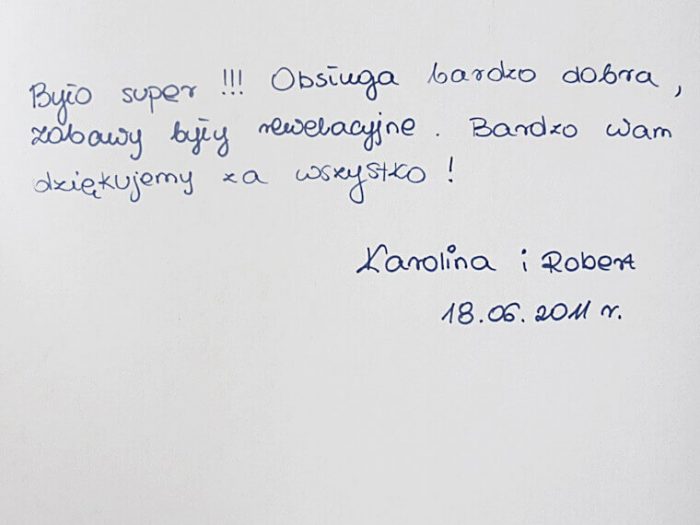 Było super !!! Obsługa bardzo dobra,
zabawy były rewelacyjne. Bardzo wam
dziękujemy za wszystko!
Karolina i Robert
18.06.2011 r.